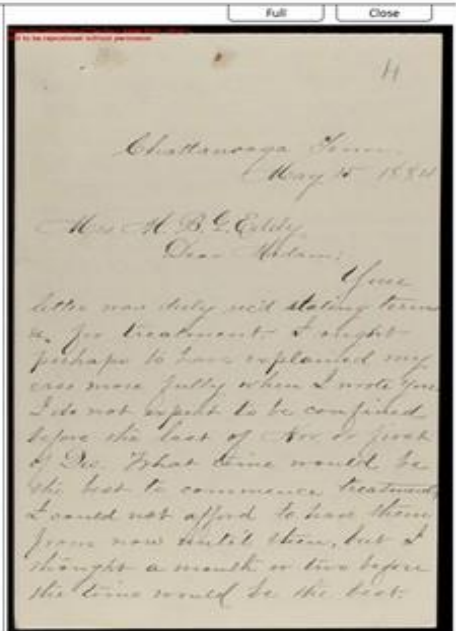 Full Close
to be reproduced without permission
4
Chattanooga Tenn.
May 15 1884
Mrs M. B. G. Eddy,
Dear Madam:
Your
letter was duly rec'd stating terms
&c. for treatment. I ought
perhaps to have explained my
case more fully when I wrote you
I do not expect to be confined
before the last of Nov or first
of Dec. What time would be
the best to commence treatment,
I could not afford to have them
from now until then, but I
thought a month or two before
the time would be the best.